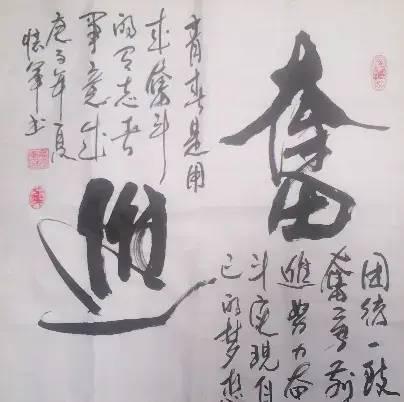 奮
進
团结一致
奮勇前
進努力奋
斗实现自
己的梦想
青春是用
来奮斗
的有志者
事竟成
庚子年夏
书